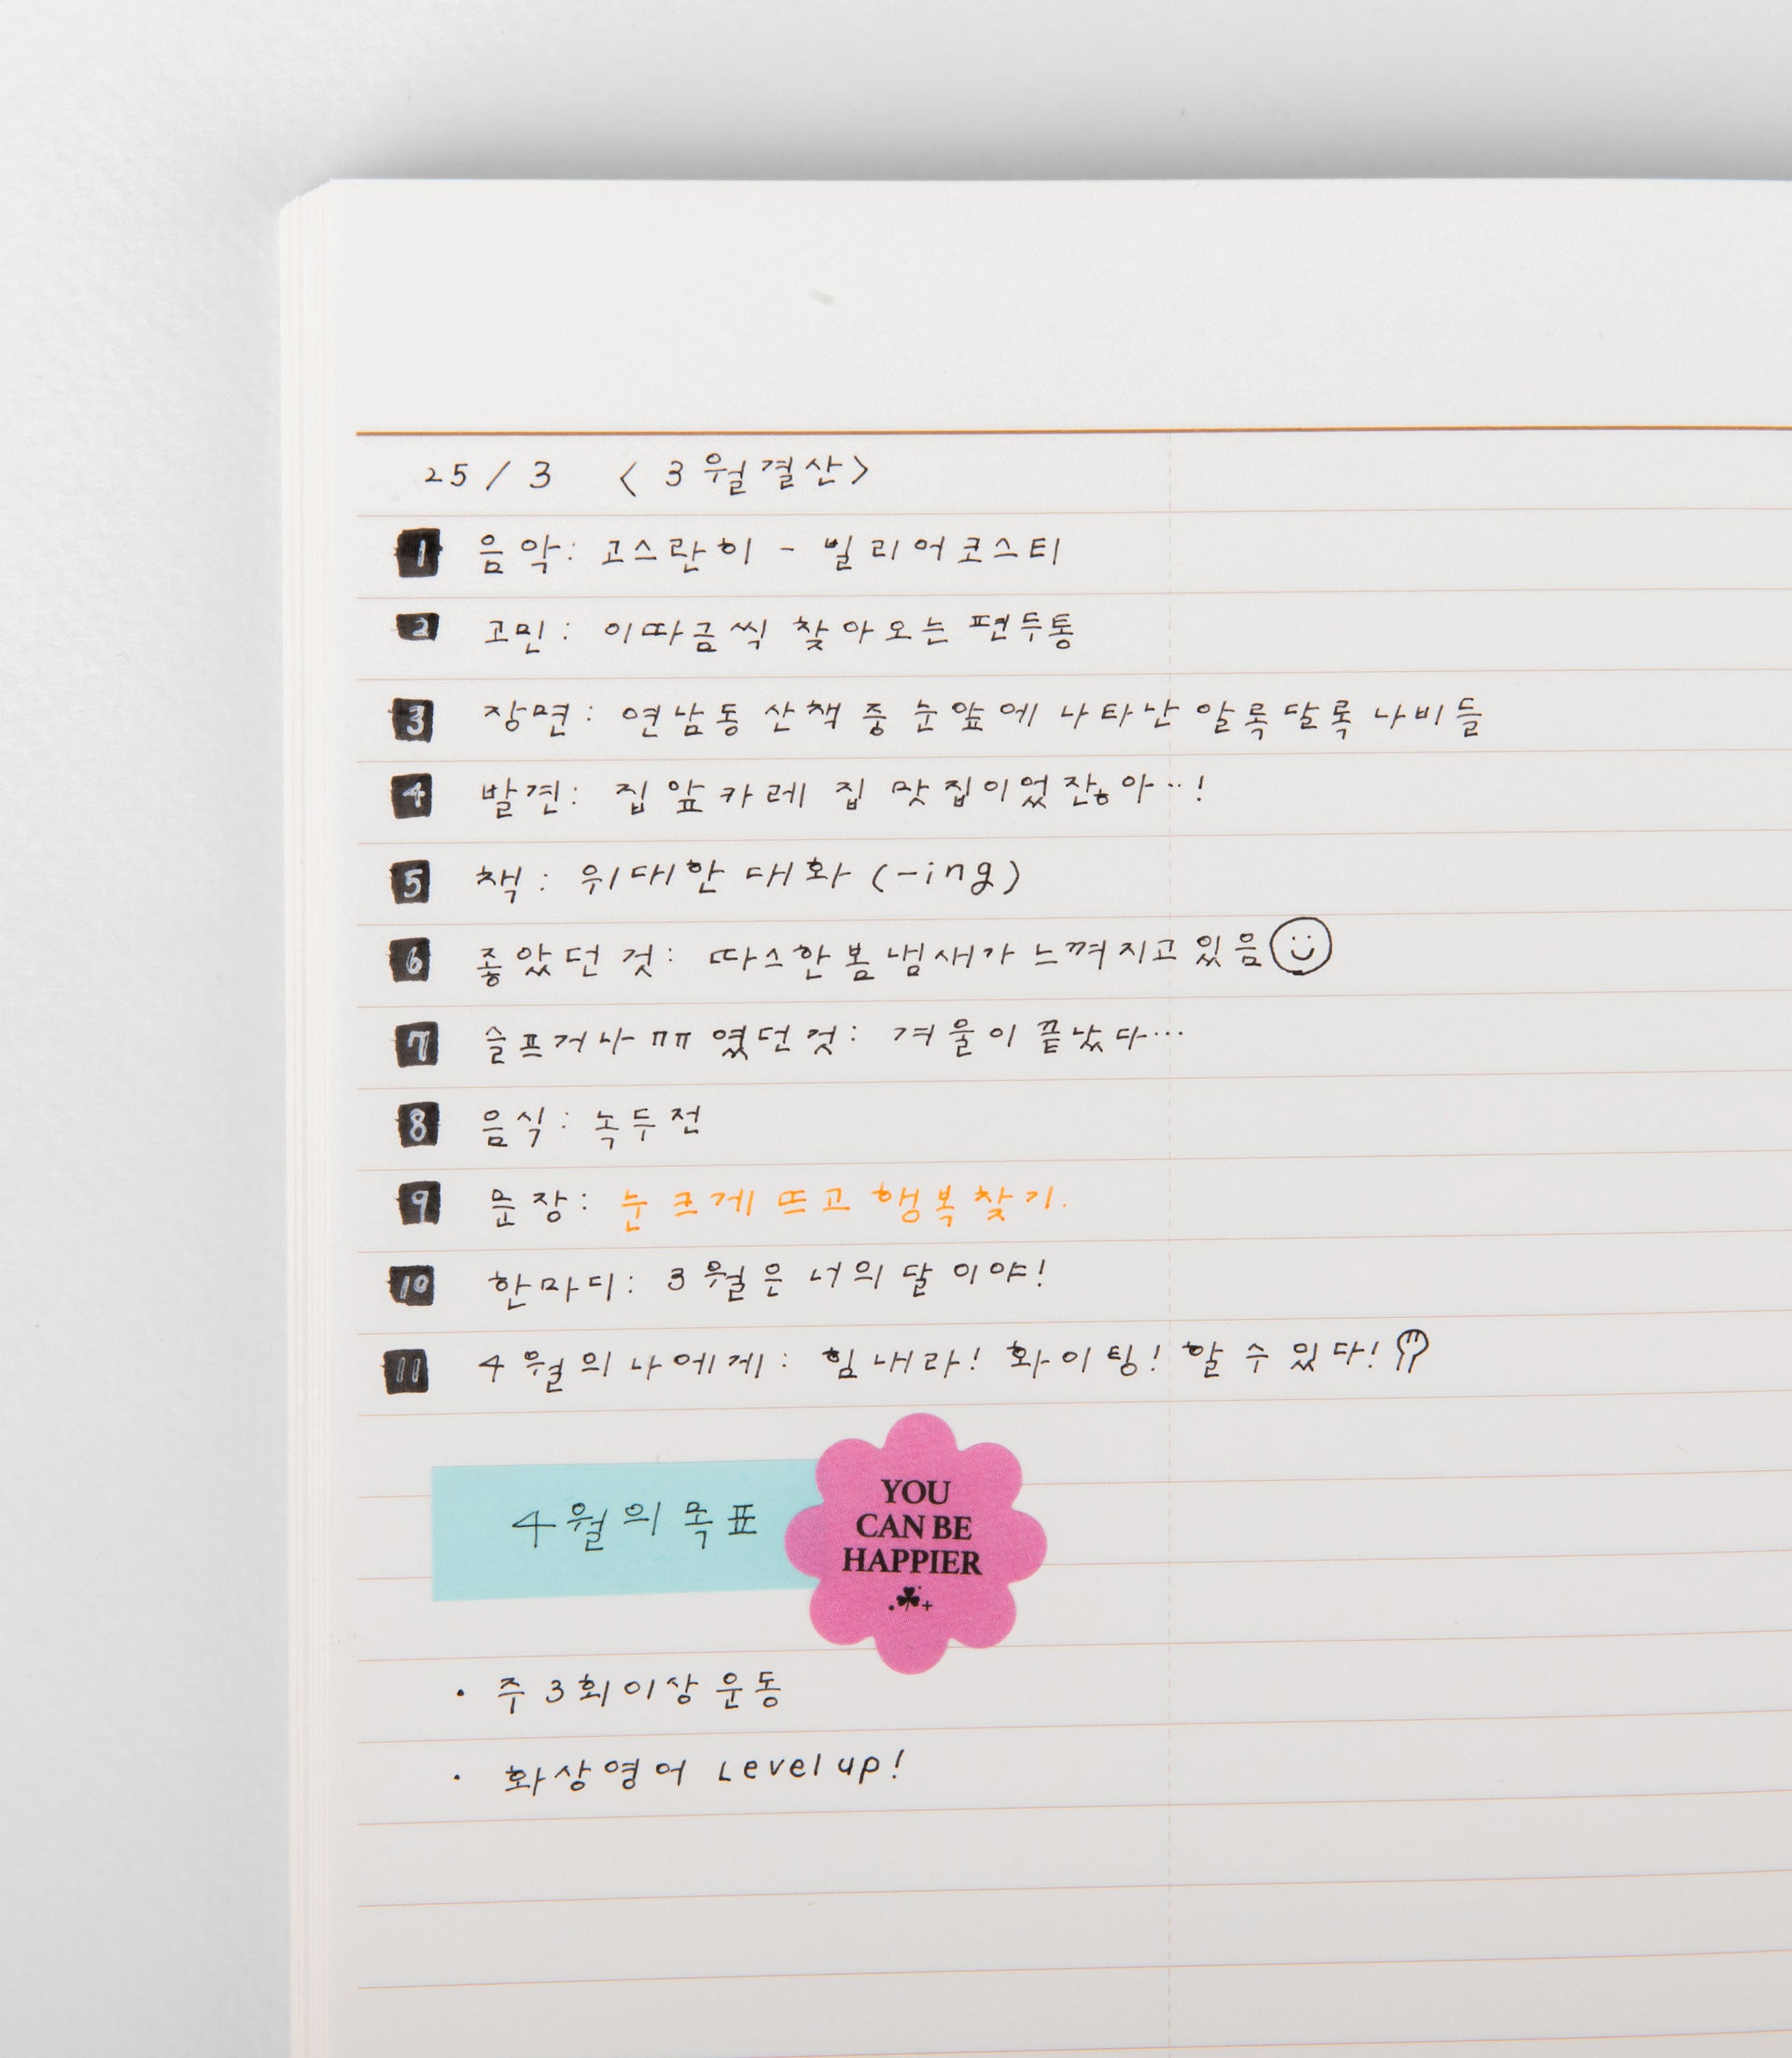 25 / 3 < 3월결산 >
1 음악: 고스란히 - 빌리어코스티
2 고민: 이따금씩 찾아오는 편두통
3 장면: 연남동 산책 중 눈앞에 나타난 알록달록 나비들
4 발견: 집 앞 카레 집 맛집이었잖아..!
5 책: 위대한 대화 (-ing)
6 좋았던 것: 따스한 봄 냄새가 느껴지고 있음
7 슬프거나 ㅠㅠ 였던 것: 겨울이 끝났다...
8 음식: 녹두전
9 문장: 눈 크게 뜨고 행복 찾기.
10 한마디: 3월은 너의 달이야!
11 4월의 나에게: 힘내라! 화이팅! 할 수 있다!
4월의 목표
YOU
CAN BE
HAPPIER
· 주 3회 이상 운동
· 화상영어 Level up!